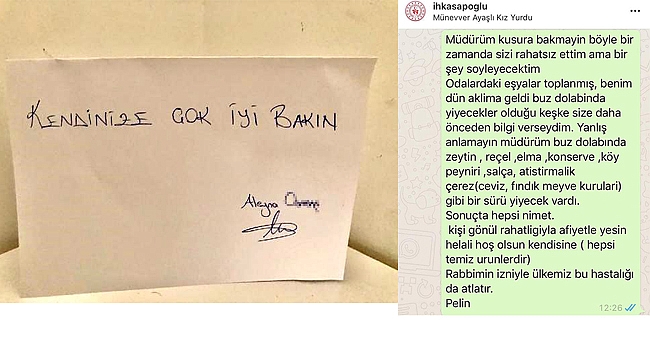 KENDİNİZE ÇOK İYİ BAKIN
Aleyna
ihkasapoglu
Münevver Ayaşlı Kız Yurdu
Müdürüm kusura bakmayin böyle bir
zamanda sizi rahatsız ettim ama bir
şey soyleyecektim
Odalardaki eşyalar toplanmış, benim
dün aklima geldi buz dolabinda
yiyecekler olduğu keşke size daha
önceden bilgi verseydim. Yanlış
anlamayın müdürüm buz dolabında
zeytin , reçel ,elma ,konserve ,köy
peyniri ,salça, atistirmalik
çerez(ceviz, fındık meyve kurulari)
gibi bir sürü yiyecek vardı.
Sonuçta hepsi nimet.
kişi gönül rahatligiyla afiyetle yesin
helali hoş olsun kendisine ( hepsi
temiz urunlerdir)
Rabbimin izniyle ülkemiz bu hastalığı
da atlatır.
Pelin
12:26